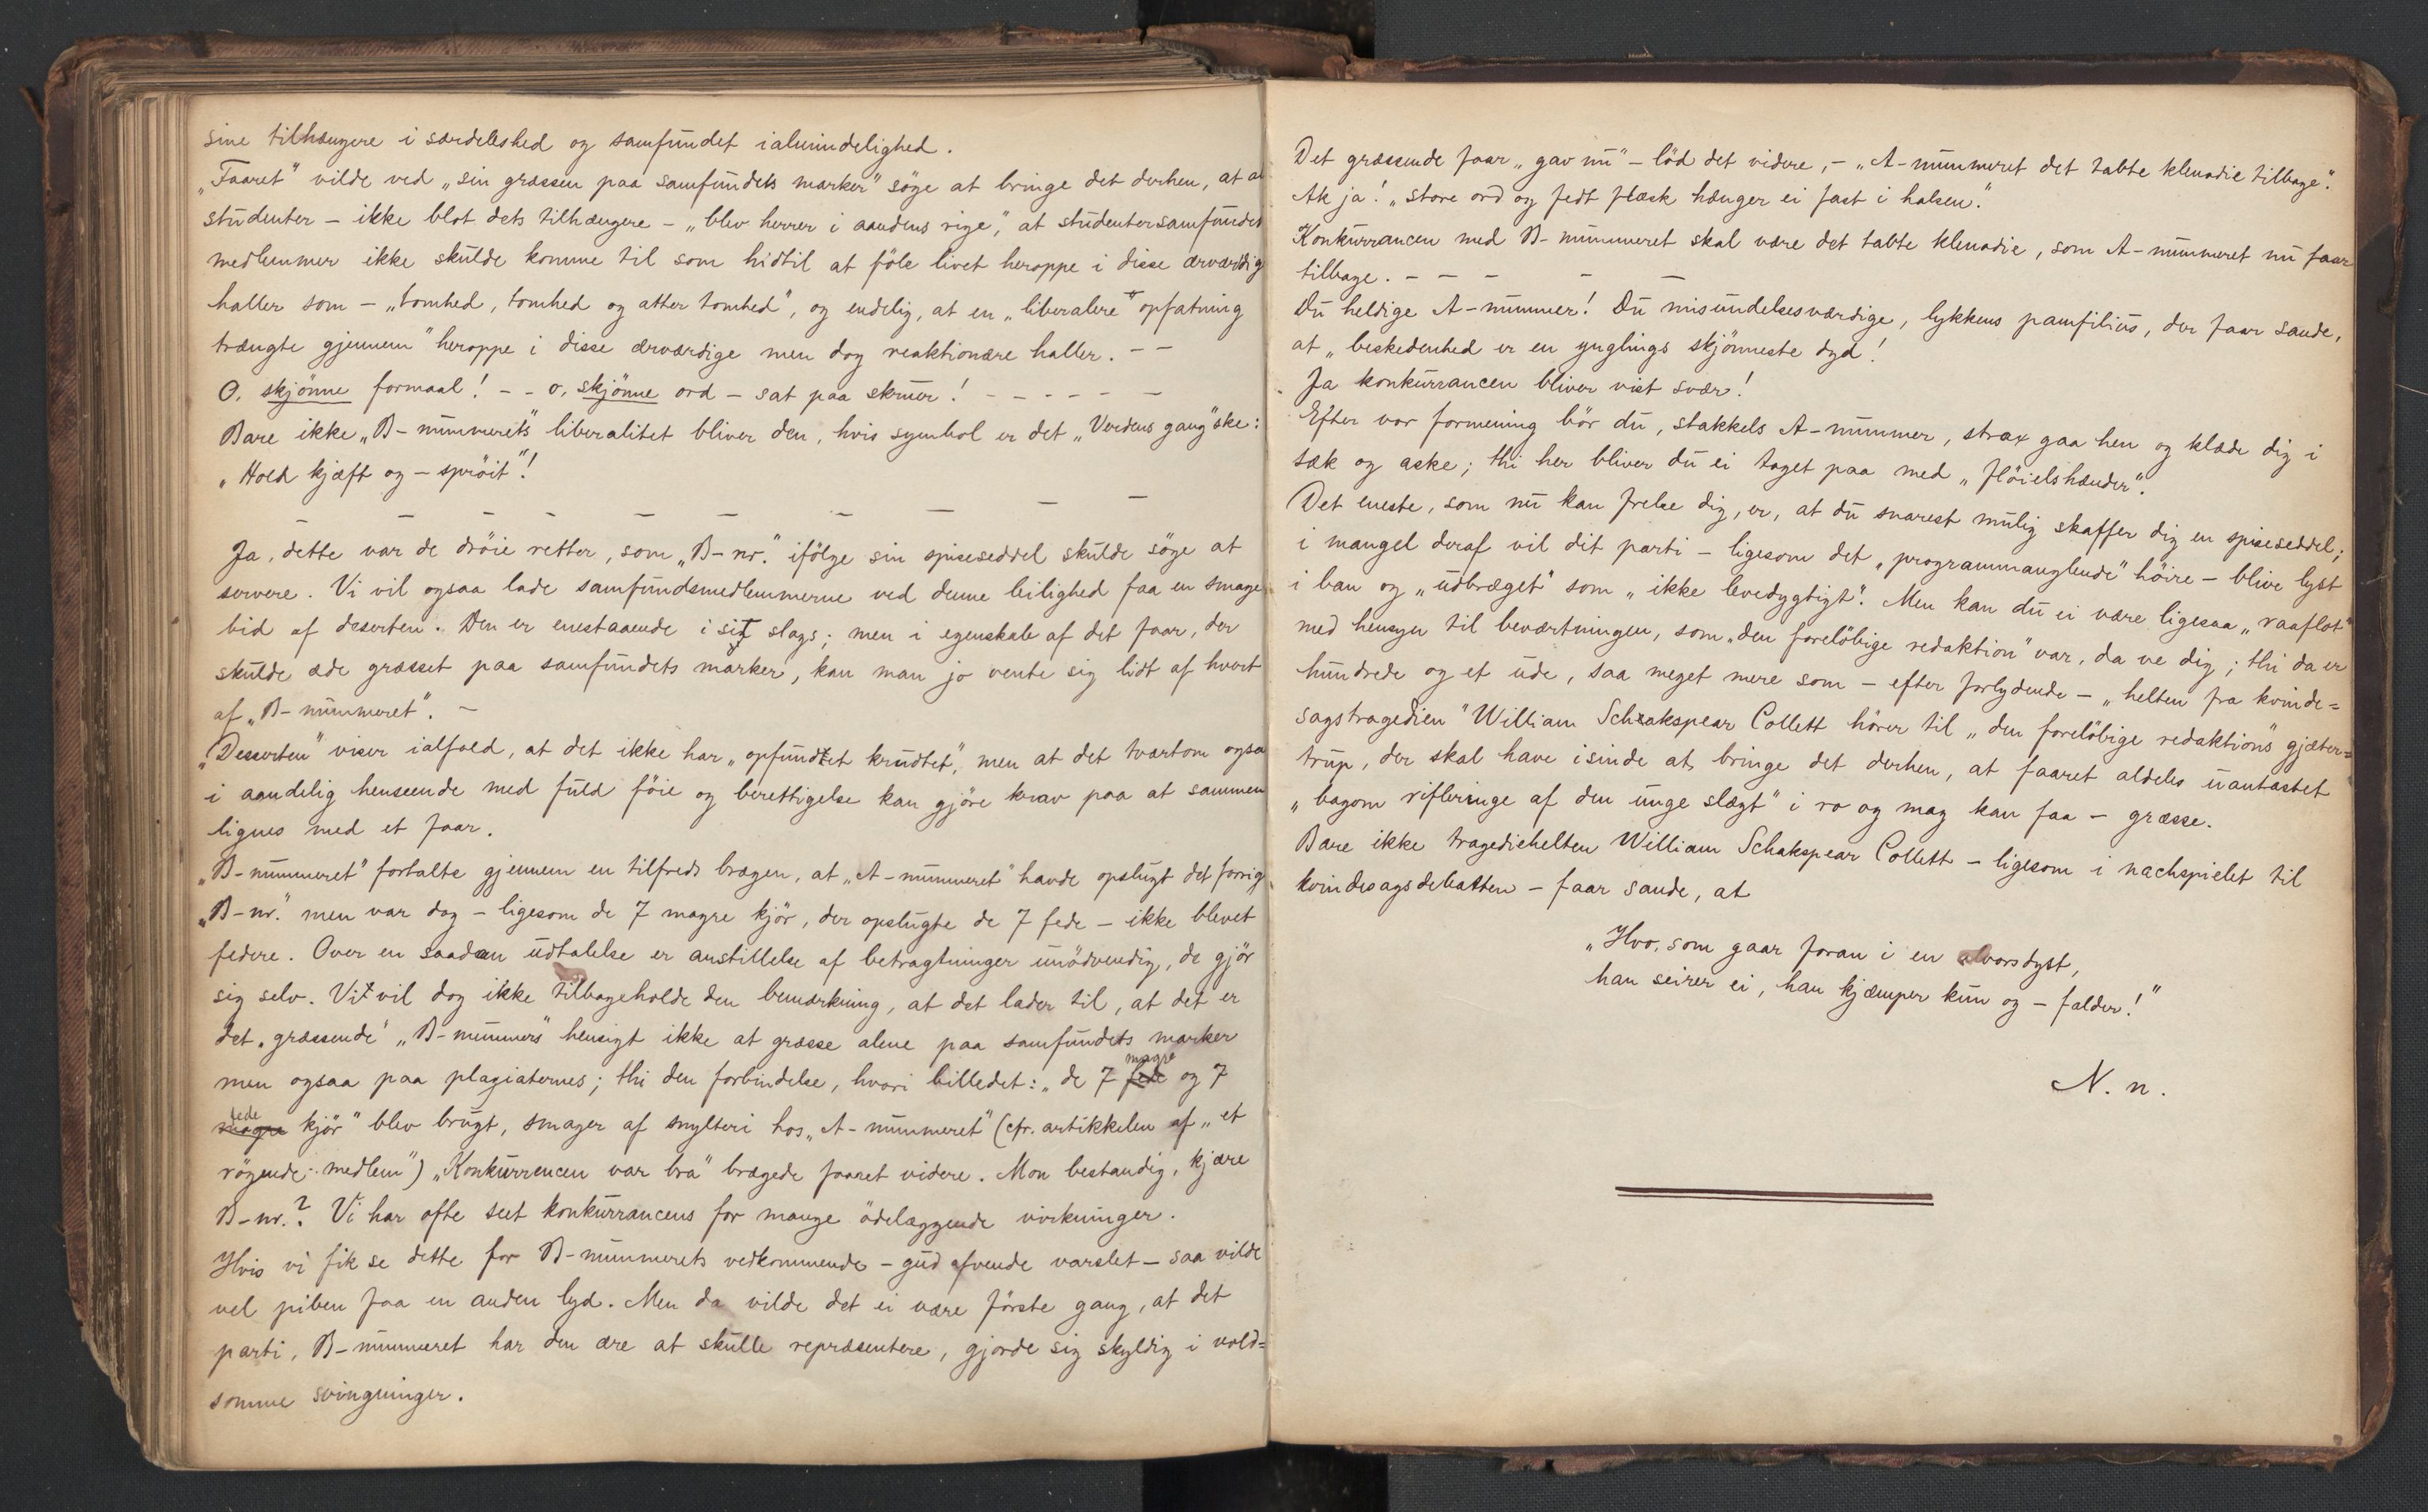 sine tilhængere i særdeleshed og samfundet ialmindelighed.
„Faaret" vilde ved „sin græssen paa samfundets marker" søge at bringe det derhen, at al
studenter – ikke blot dets tilhængere – „blev herrer i aandens rige", at studentersamfundet
medlemmer ikke skulde komme til som hidtil at føle livet heroppe i disse ærværdig
haller som – „tomhed, tomhed og atter tomhed", og endelig, at en „liberalere" opfatning
trængte gjennem" heroppe i disse ærværdige men dog reaktionære haller. – –
O, skjønne formaal! – – o, skjønne ord – sat paa skruer! – – – – – –
Bare ikke „B-nummerets" liberalitet bliver den, hvis symbol er det „Verdens gang"ske:
„Hold kjæft og – sprøit"!
– – – – – – – – – –
Ja, dette var de drøie retter, som „B-nr." ifølge sin spiseseddel skulde søge at
servere. Vi vil ogsaa lade samfundsmedlemmerne ved denne leilighed faa en smage
bid af deserten. Den er enestaaende i sit slags; men i egenskab af det faar, der
skulde æde græsset paa samfundets marker, kan man jo vente sig lidt af hvert
af „B-nummeret". –
„Desserten" viser ialfald, at det ikke har „opfundtet krudtet", men at det tvertom ogsa
i aandelig henseende med fuld føie og berettigelse kan gjøre krav paa at sammen
lignes med et faar.
„B-nummeret" fortalte gjennem en tilfreds brægen, at „A-nummeret" havde opslugt det forrig
„B-nr." men var dog – ligesom de 7 magre kjør, der opslugte de 7 fede – ikke blevet
federe. Over en saadan udtalelse er anstillelse af betragtninger unødvendig, de gjør
sig selv. Vi vil dog ikke tilbageholde den bemærkning, at det lader til, at det er
det „græssende" „B-nummers" hensigt ikke at græsse alene paa samfundets marker
men ogsaa paa plagiaternes; thi den forbindelse, hvori billedet: „de 7 fede magre og 7
magre fede kjør" blev brugt, smager af snylteri hos „A-nummeret" (cfr. artikkelen af „et
røgende medlem") „Konkurrencen var bra" brægede faaret videre. Mon bestandig, kjære
B-nr.? Vi har ofte seet konkurrancens for mange ødelæggende virkninger.
Hvis vi fik se dette for B-nummerets vedkommende – gud afvende varslet – saa vilde
vel piben faa en anden lyd. Men da vilde det ei være første gang, at det
parti, B-nummeret har den ære at skulle repræsentere, gjorde sig skyldig i vold=
somme svingninger.
Det græssende faar „gav nu" – lød det videre, – „A-nummeret det tabte klenodie tilbage".
Ak ja! „store ord og fedt flæsk hænger ei fast i halsen."
Konkurrancen med B-nummeret skal være det tabte klenodie, som A-nummeret nu faar
tilbage. – – – – –
Du heldige A-nummer! Du misundelsesværdige, lykkens pamfilius, der faar sande,
at „beskedenhed er en ynglings skjønneste dyd!
Ja konkurrancen bliver vist svær!
Efter vor formening bør du, stakkels A-nummer, strax gaa hen og klæde dig i
sæk og aske; thi her bliver du ei taget paa med „fløielshænder".
Det eneste, som nu kan frelse dig, er, at du snarest mulig skaffer dig en spiseseddel;
i mangel deraf vil dit parti – ligesom det „programmanglende" høire – blive lyst
i ban og „udbræget" som „ikke levedygtigt". Men kan du ei være ligesaa „raaflot"
med hensyn til beværtningen, som „den foreløbige redaktion" var, da ve dig; thi da er
hundrede og et ude, saa meget mere som – efter forlydende – „helten fra kvinde=
sagstragedien" William Schakspear Collett hører til „den foreløbige redaktions" gjæter=
trup, der skal have isinde at bringe det derhen, at faaret aldeles uantastet
„bagom rifleringe af den unge slægt" i ro og mag kan faa – græsse.
Bare ikke tragediehelten William Schakspear Collett – ligesom i nachspielet til
kvindesagsdebatten – faar sande, at
„Hvo, som gaar foran i en alvorsdyst,
han seirer ei, han kjæmper kun og – falder!"
N. n.